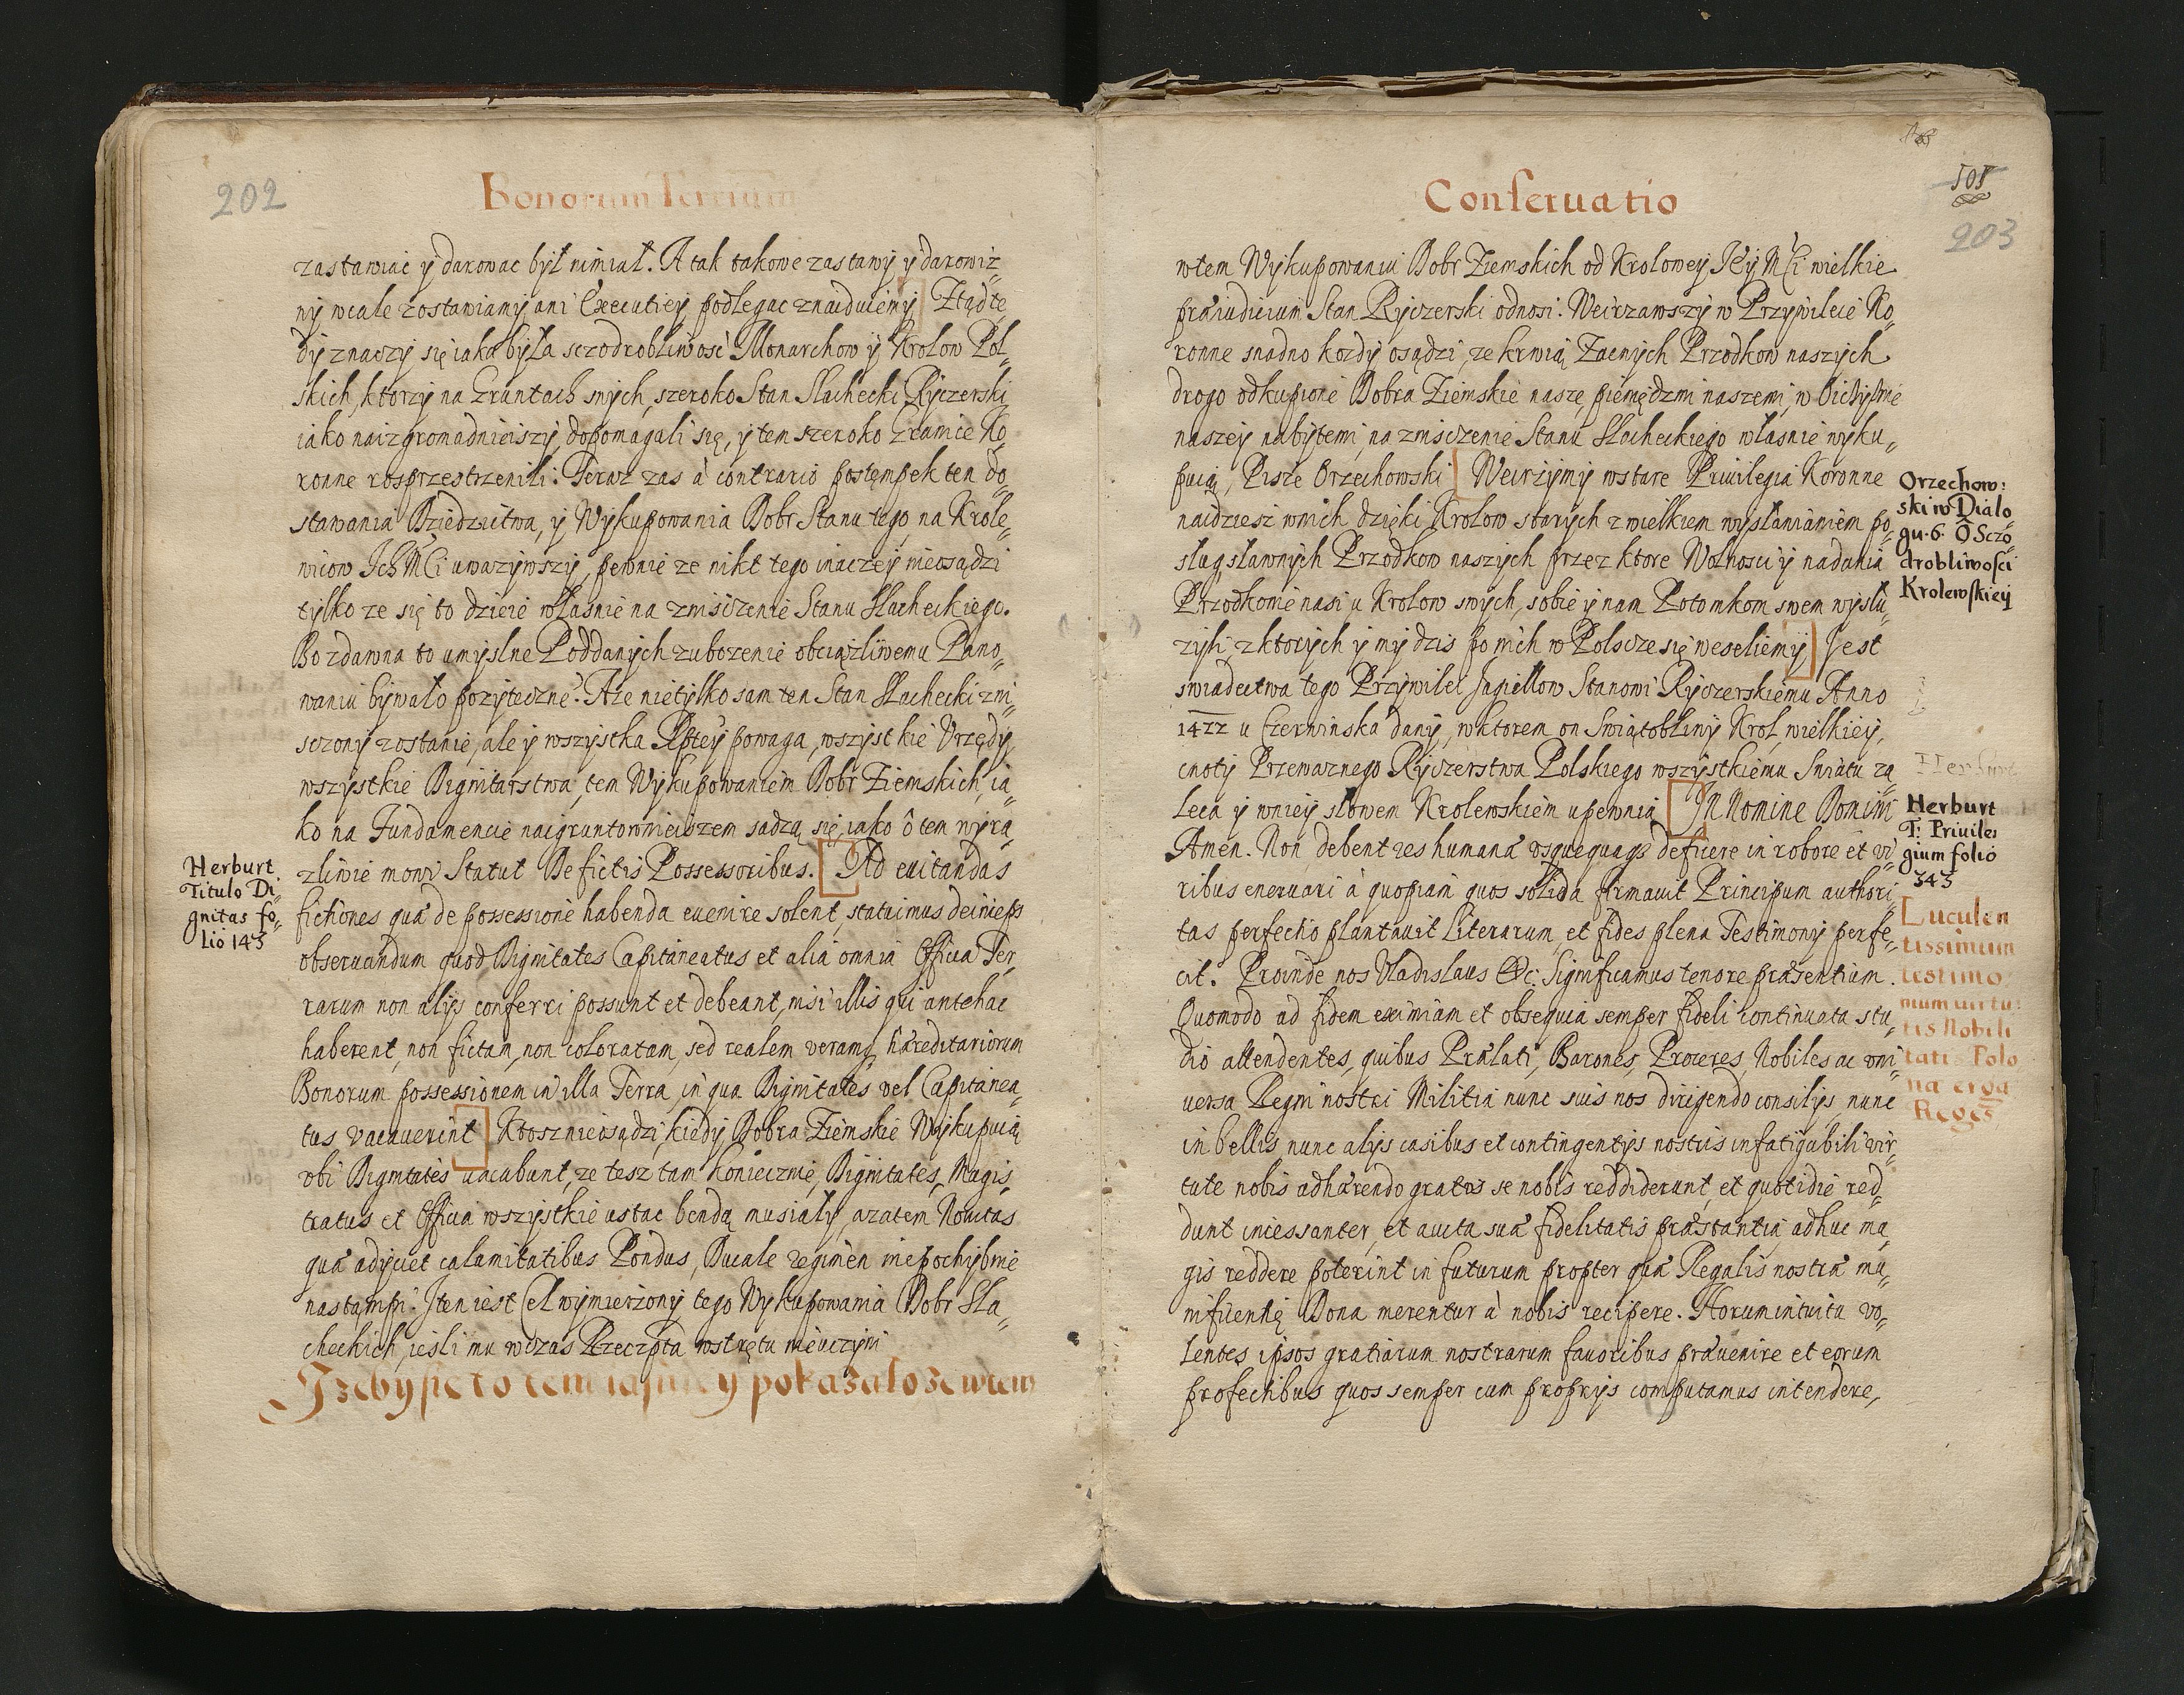 202
Bonorum Terrium
zastawiac y darowac był nimiał. A tak takowe zastawy y darowiz„
ny wcale zostawiamy ani Executiey podlegac znaiduiemy Ztąd te
dy znaczy się iaka była sczodrobliwosć Monarchow y Krolow Pol„
skich, ktorzy na Gruntach swych, szeroko Stan Slachecki Ryczerski
iako naizgromadnieiszy, dopomagali się, y tem szeroko Granice Ko„
ronne rosprzestrzenili: Teraz zas à contrario postęmpek ten do„
stawania Dziedzictwa, y Wykupowania Dobr Stanu tego, na Krole„
wicow Ich M Ci uwazywszy, pewnie ze nikt tego inaczey nieosądzi
tylko ze się to dzieie własnie na zniszczenie Stanu Slacheckiego.
Bo zdawna to umyslne Poddanych zubozenie obciązliwemu Pano„
waniu bywało pozyteczne. Aze nietylko sam ten Stan Slachecki zni„
sczony zostanie, ale y wszystka Rptey powaga, wszystkie Vrzędy,
wszystkie Dignitarstwa, tem Wykupowaniem Dobr Ziemskich, ia„
ko na Fundamencie naigruntownieiszem sadzą się, iako ô tem wyra„
zliwie mowi Statut De fictis Possessoribus. Ad euitandas
Herburt
Titulo Di„
gnitas fo„
lio 143
fictiones quæ de possessione habenda euenire solent, statuimus deinceps
obseruandum quod Dignitates Capitaneatus et alia omnia Officia Ter„
rarum non alijs conferri possunt et debeant, nisi illis qui antehac
haberent, non fictam, non coloratam, sed realem veramq hæreditariorum
Bonorum possessionem in illa Terra, in qua Dignitates vel Capitanea„
tus vacauerint Ktosz nieosądzi, kiedy Dobra Ziemskie Wykupuią
vbi Dignitates uacabunt, ze tesz tam koniecznie, Dignitates, Magis„
tratus et Officia wszystkie ustac bendą musiały, azatem Nouitas
quæ adijciet calamitatibus Pondus, Ducale regimen niepochybnie
nastąmpi. Iten iest Cel wymierzony tego Wykupowania Dobr Sla„
checkich, iesli mu wczas Rzeczpta wstrętu nieuczyni
Izeby sie to tem iasniey pokazało ze w tem

Conseruatio
505
203
wtem Wykupowaniu Dobr Ziemskich od Krolowey Iey M Ci wielkie
præiudicium Stan Ryczerski odnosi: Weirzawszy w Przywileie Ko„
ronne snadno kozdy osądzi, ze krwią Zacnych Przodkow naszych
drogo odkupione Dobra Ziemskie nasze, pieniędzmi naszemi, w Oiczyznie
naszey nabytemi, na zniszczenie Stanu Slacheckiego własnie wyku„
puią, Pisze Orzechowski Weirzymy wstare Priuilegia Koronne
Orzechow:
ski w Dialo
gu. 6. Ô Sczo„
drobliwosci
Krolewskiey
naidziesz wnich dzięki Krolow starych z wielkiem wysławianiem po„
sług, sławnych Przodkow naszych przez ktore Wolnosci y nadania
Przodkowie nasi u Krolow swych, sobie y nam Potomkom swem wysłu„
zyli, z ktorych y my dzis po nich w Polscze się weseliemy Iest
swiadectwa tego Przywilei Jagiellow Stanowi Ryczerskiemu Anno
1422 u Czerwinska dany, wktorem on Swiątobliwy Krol, wielkiey,
cnoty Przewaznego Ryczerstwa Polskiego wszystkiemu Swiatu za„
leca y wniey słowem Krolewskiem upewnia In Nomine Domini
Herburt
T: Priuile„
gium folio
343
Amen. Non debent res humanæ vsquequaq deficere in robore et vi„
ribus eneruari à quopiam quos solida firmauit Principum authori„
tas perfectio plantauit Literarum, et fides plena Testimony perfe„
cit. Proinde nos Vladislaus &c: Significamus tenore præsentium.
Luculen
tissimum
testimo
nium uirtu:
tis Nobili
tatis Polo
na erga
Reges
Quomodo ad fidem eximiam et obsequia semper fideli continuata stu„
dio attendentes, quibus Prælati, Barones, Proceres, Nobiles ac vni„
uersa Regni nostri Militia nunc suis nos dirigendo consilijs, nunc
in bellis, nunc alijs casibus et contingentijs nostris infatigabili vir„
tute nobis adhærendo gratos se nobis reddiderunt, et quotidie red„
dunt incessanter, et aucta suæ fidelitatis præstantia adhuc ma„
gis reddere poterint in futurum propter quæ Regalis nostræ mu„
nificentię Dona merentur à nobis recipere. Horum intuitu vo„
lentes ipsos gratiarum nostrarum fauoribus præuenire et eorum
profectibus quos semper cum proprijs computamus intendere,